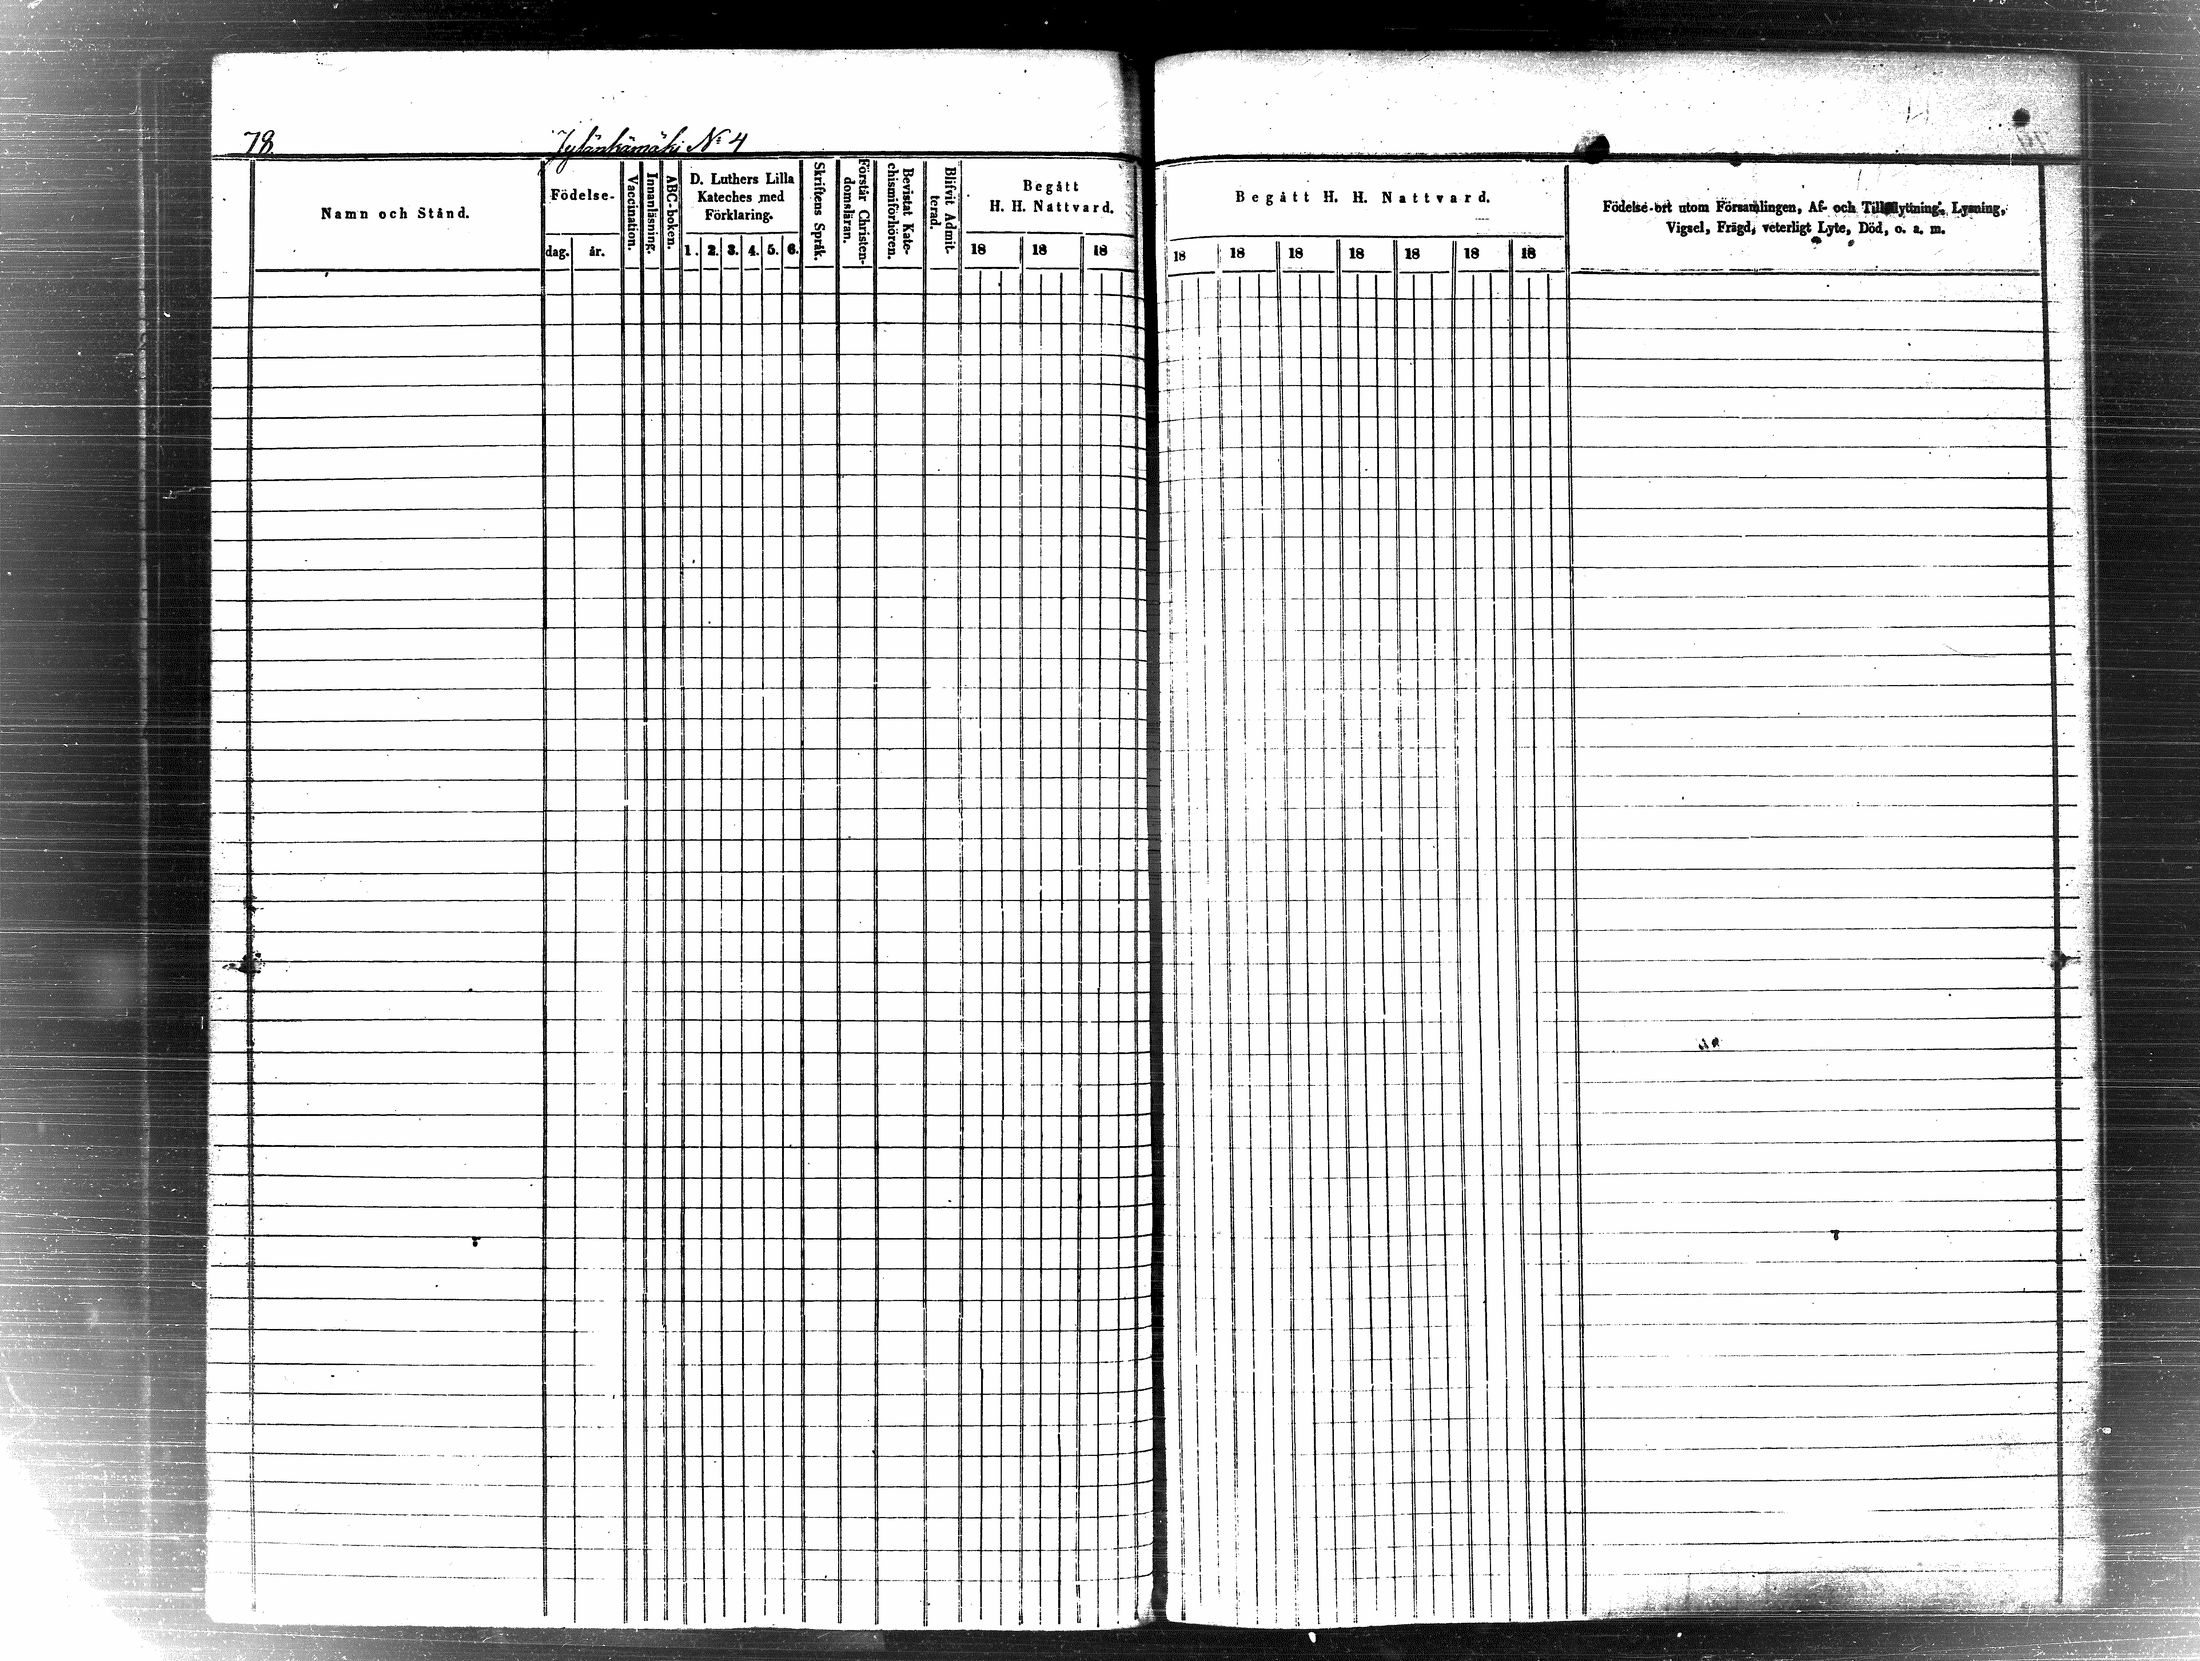 78.
Jylänkämäki No 4
Namn och Stånd.
Födelse-
dag.
år.
Vaccination.
Innanläsning.
ABC-boken.
D. Luthers Lilla
Kateches med
Förklaring.
1. 2. 3. 4. 5. 6.
Skriftens Språk.
Förstår Christen-
domsläran.
Bevistat Kate-
chismiförhören.
Blifvit Admit-
terad.
Begått
H. H. Nattvard.
18 18 18
Begått H. H. Nattvard.
18 18 18 18 18 18 18
Födelse-ort utom Församlingen, Af- och Tillflyttning, Lysning,
Vigsel, Frägd, veterligt Lyte, Död, o. s. m.